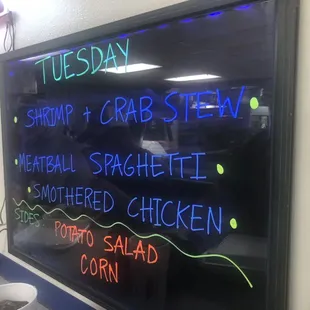 TUESDAY
SHRIMP + CRAB STEW
MEATBALL SPAGHETTI
SMOTHERED CHICKEN
SIDES POTATO SALAD
CORN